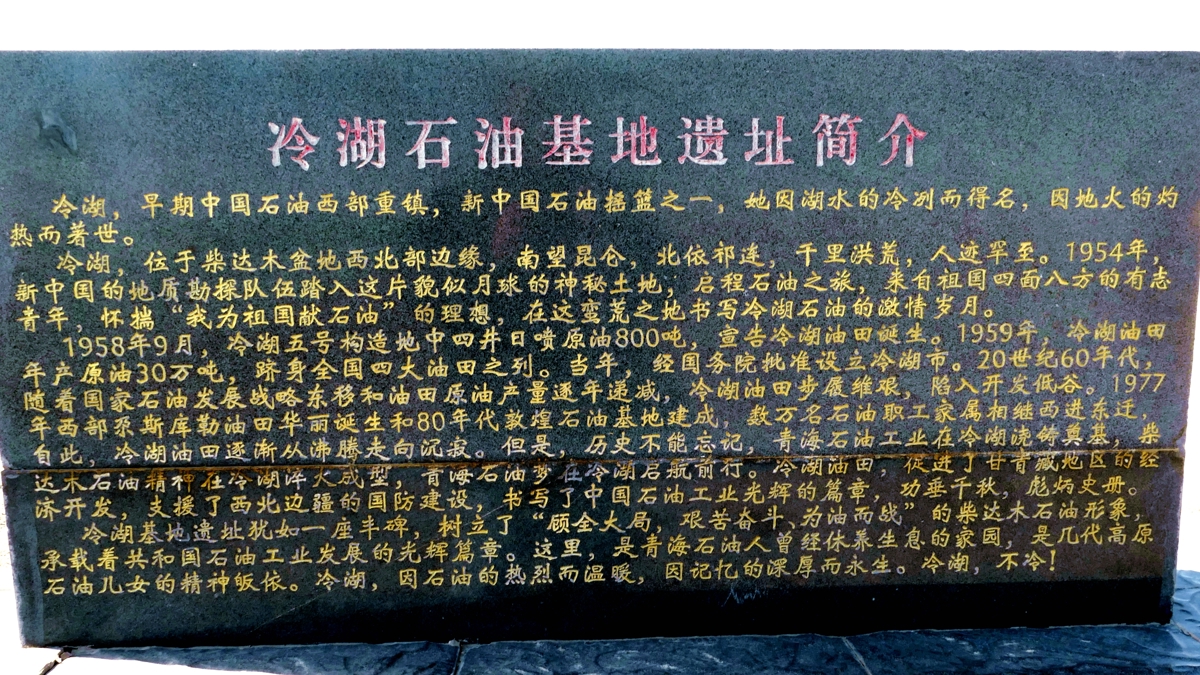 冷湖石油基地遗址简介
冷湖，早期中国石油西部重镇，新中国石油摇篮之一，她因湖水的冷冽而得名，因地火的灼
热而著世。
冷湖，位于柴达木盆地西北部边缘，南望昆仑，北依祁连，千里洪荒，人迹罕至。1954年，
新中国的地质勘探队伍踏入这片貌似月球的神秘土地，启程石油之旅，来自祖国四面八方的有志
青年，怀揣“我为祖国献石油”的理想，在这蛮荒之地书写冷湖石油的激情岁月。
1958年9月，冷湖五号构造地中四井日喷原油800吨，宣告冷湖油田诞生。1959年，冷湖油田
年产原油30万吨，跻身全国四大油田之列。当年，经国务院批准设立冷湖市。20世纪60年代，
随着国家石油发展战略东移和油田原油产量逐年递减，冷湖油田步履维艰，陷入开发低谷。1977
年西部尕斯库勒油田华丽诞生和80年代敦煌石油基地建成，数万名石油职工家属相继西进东迁，
自此，冷湖油田逐渐从沸腾走向沉寂。但是，历史不能忘记，青海石油工业在冷湖浇铸奠基，柴
达木石油精神在冷湖淬火成型，青海石油梦在冷湖启航前行。冷湖油田，促进了甘青藏地区的经
济开发，支援了西北边疆的国防建设，书写了中国石油工业光辉的篇章，功垂千秋，彪炳史册。
冷湖基地遗址犹如一座丰碑，树立了“顾全大局，艰苦奋斗、为油而战”的柴达木石油形象，
承载着共和国石油工业发展的光辉篇章。这里，是青海石油人曾经休养生息的家园，是几代高原
石油儿女的精神皈依。冷湖，因石油的热烈而温暖，因记忆的深厚而永生。冷湖，不冷！